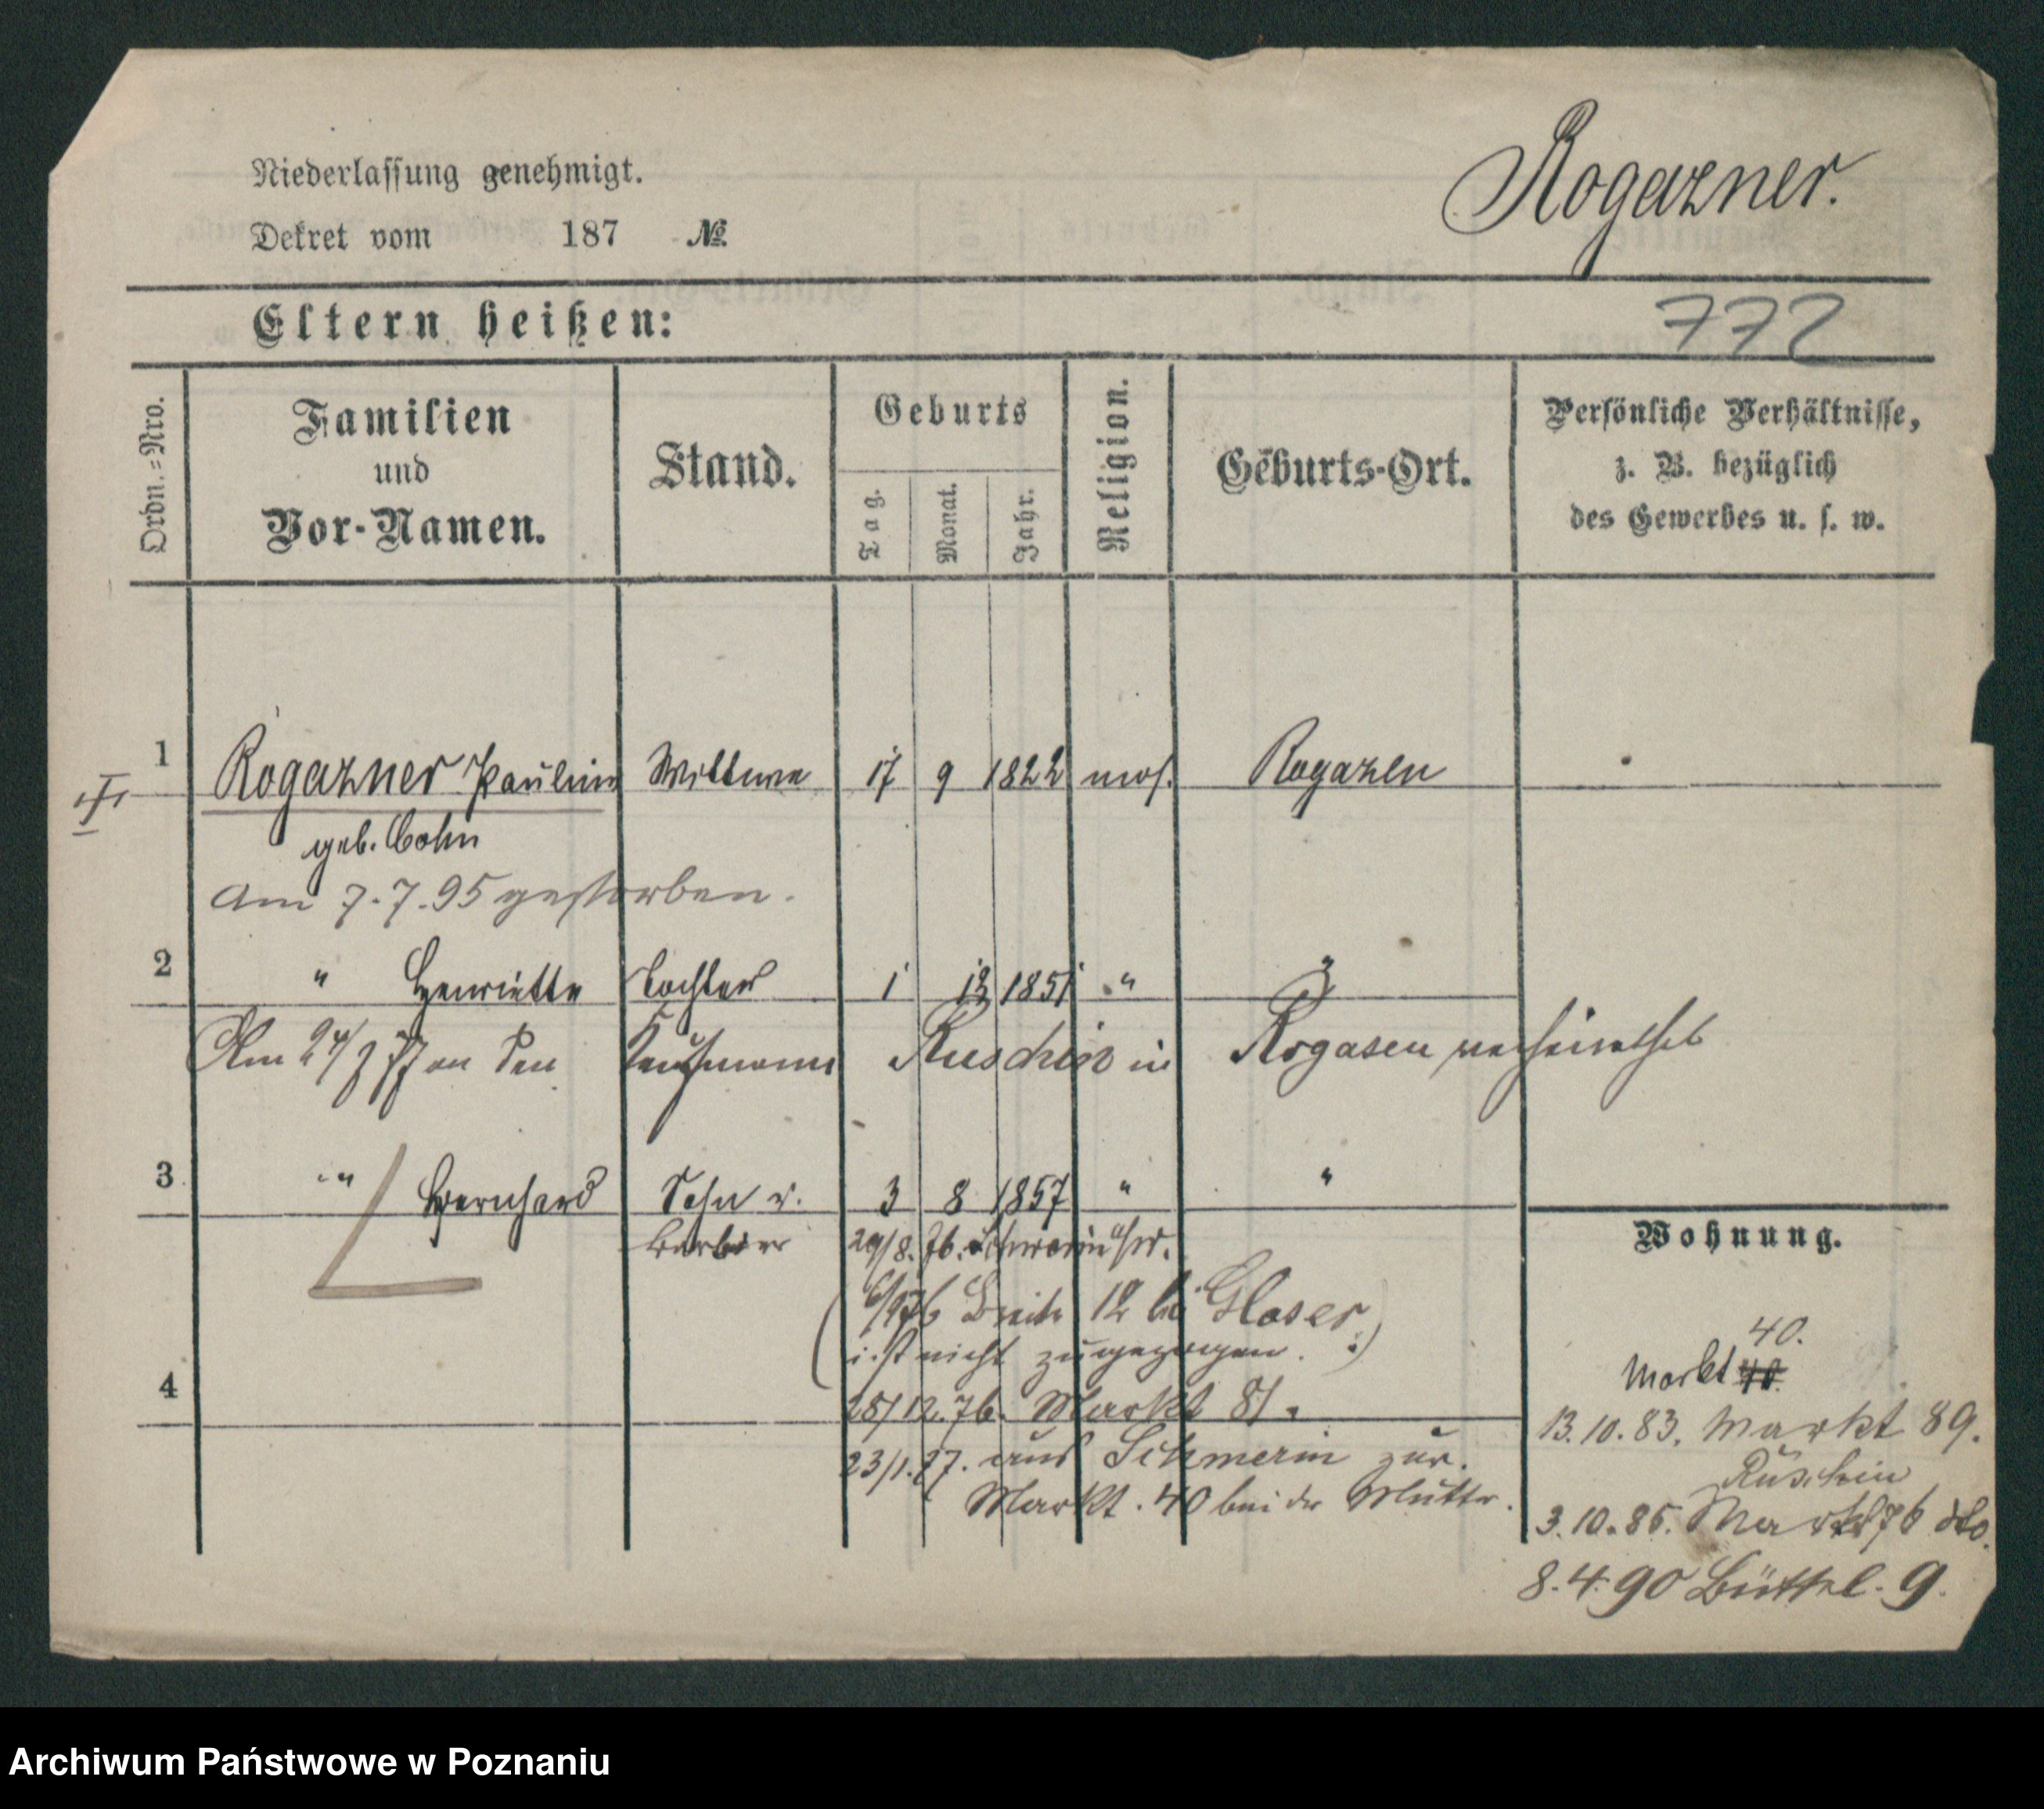 Niederlassung genehmigt.
Dekret vom 187 №
Rogazner.
Eltern heißen:
772
Ordn.=Nro.
Familien
und
Vor-Namen.
Stand.
Geburts
Tag. Monat. Jahr.
Religion.
Geburts-Ort.
Persönliche Verhältnisse,
z. B. bezüglich
des Gewerbes u. s. w.
1 Rogazner Pauline Wittwe 17 9 1822 mos. Rogazen
geb. Cohn
Am 7.7.95 gestorben.
2 " Henriette Tochter 1 12 1851 "
Am 24/ 77 an den Kaufmann Ruschin in Rogasen verheirathet
3 " " Bernhard Sohn u. 3 8 1857 " "
Barbier 29/8. 76. Schwerin
Wohnung.
( 6/9 76 Breite 12 bei Glaser
ist nicht zugezogen. :)
40.
Markt 40.
4
28/12.76. Markt 81.
13.10.83. Markt 89.
23/1.77. aus Schwerin zur.
Ruschin
Markt. 40 bei der Mutter.
3.10.85. Markt 76 dto.
8.4.90 Büttel. 9.
Archiwum Państwowe w Poznaniu